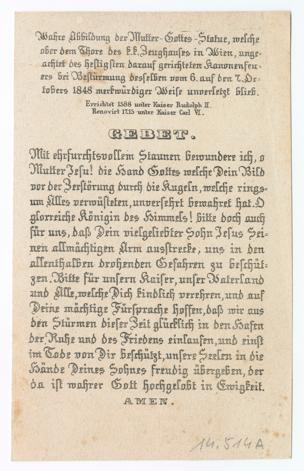 Wahre Abbildung der Mutter-Gottes-Statue, welche
ober dem Thore des k.k. Zeughauses in Wien, unge-
achtet des heftigsten darauf gerichteten Kanonenfeu-
ers bei Bestürmung desselben vom 6. auf den 7. Oc-
tobers 1848 merkwürdiger Weise unversetzt blieb.
Errichtet 1588 unter Kaiser Rudolph II.
Renovirt 1735 unter Kaiser Carl VI.
GEBET.
Mit ehrfurchtsvollem Staunen bewundere ich, o
Mutter Jesu! die Hand Gottes welche Dein Bild
vor der Zerstörung durch die Kugeln, welche rings-
um Alles verwüsteten, unversehrt bewahret hat. O
glorreiche Königin des Himmels! bitte doch auch
für uns, daß Dein vielgeliebter Sohn Jesus Sei-
nen allmächtigen Arm ausstrecke, uns in den
allenthalben drohenden Gefahren zu beschüt-
zen. Bitte für unsern Kaiser, unser Vaterland
und Alle, welche Dich kindlich verehren, und auf
Deine mächtige Fürsprache hoffen, daß wir aus
den Stürmen dieser Zeit glücklich in den Hafen
der Ruhe und des Friedens einlaufen, und einst
im Tode von Dir beschützt, unsere Seelen in die
Hände Deines Sohnes freudig übergeben, der
da ist wahrer Gott hochgelobt in Ewigkeit.
AMEN.
14.514A